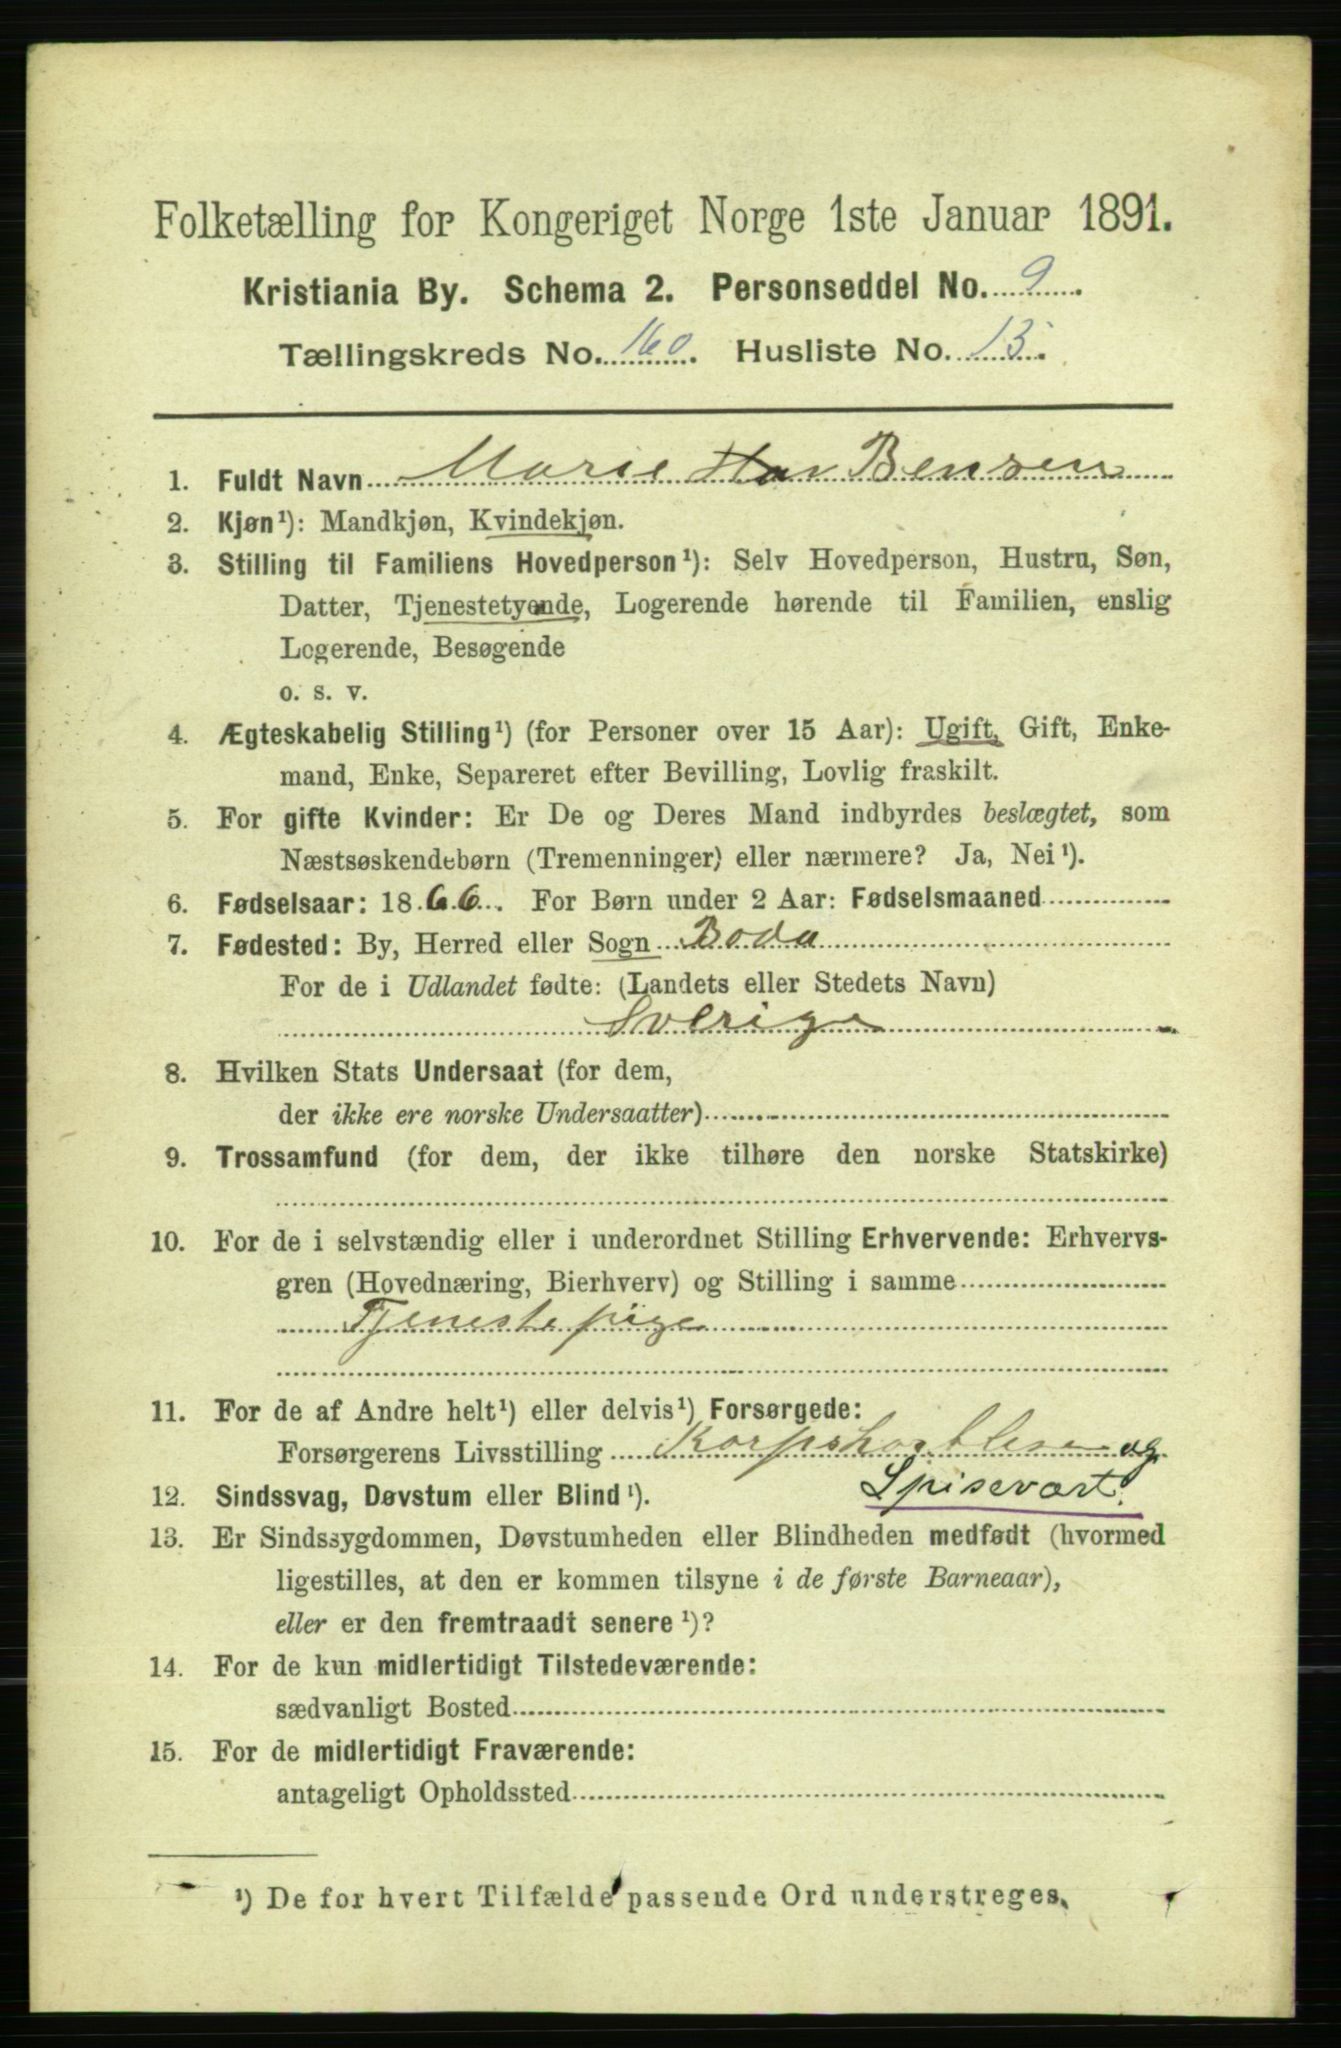 Folketælling for Kongeriget Norge 1ste Januar 1891.
Kristiania By. Schema 2. Personseddel No. 9.
Tællingskreds No. 160. Husliste No. 13.
1. Fuldt Navn Marie Bensen
2. Kjøn¹): Mandkjøn, Kvindekjøn.
3. Stilling til Familiens Hovedperson¹): Selv Hovedperson, Hustru, Søn,
Datter, Tjenestetyende, Logerende hørende til Familien, enslig
Logerende, Besøgende
o. s. v.
4. Ægteskabelig Stilling¹) (for Personer over 15 Aar): Ugift, Gift, Enke-
mand, Enke, Separeret efter Bevilling, Lovlig fraskilt.
5. For gifte Kvinder: Er De og Deres Mand indbyrdes beslægtet, som
Næstsøskendebørn (Tremenninger) eller nærmere? Ja, Nei¹).
6. Fødselsaar: 1866. For Børn under 2 Aar: Fødselsmaaned
7. Fødested: By, Herred eller Sogn Boda
For de i Udlandet fødte: (Landets eller Stedets Navn)
Sverige
8. Hvilken Stats Undersaat (for dem,
der ikke ere norske Undersaatter)
9. Trossamfund (for dem, der ikke tilhøre den norske Statskirke)
10. For de i selvstændig eller i underordnet Stilling Erhvervende: Erhvervs-
gren (Hovednæring, Bierhverv) og Stilling i samme
Tjenestepige
11. For de af Andre helt¹) eller delvis¹) Forsørgede:
Forsørgerens Livsstilling og
Spisevært.
12. Sindssvag, Døvstum eller Blind¹).
13. Er Sindssygdommen, Døvstumheden eller Blindheden medfødt (hvormed
ligestilles, at den er kommen tilsyne i de første Barneaar),
eller er den fremtraadt senere¹)?
14. For de kun midlertidigt Tilstedeværende:
sædvanligt Bosted
15. For de midlertidigt Fraværende:
antageligt Opholdssted
¹) De for hvert Tilfælde passende Ord understreges.